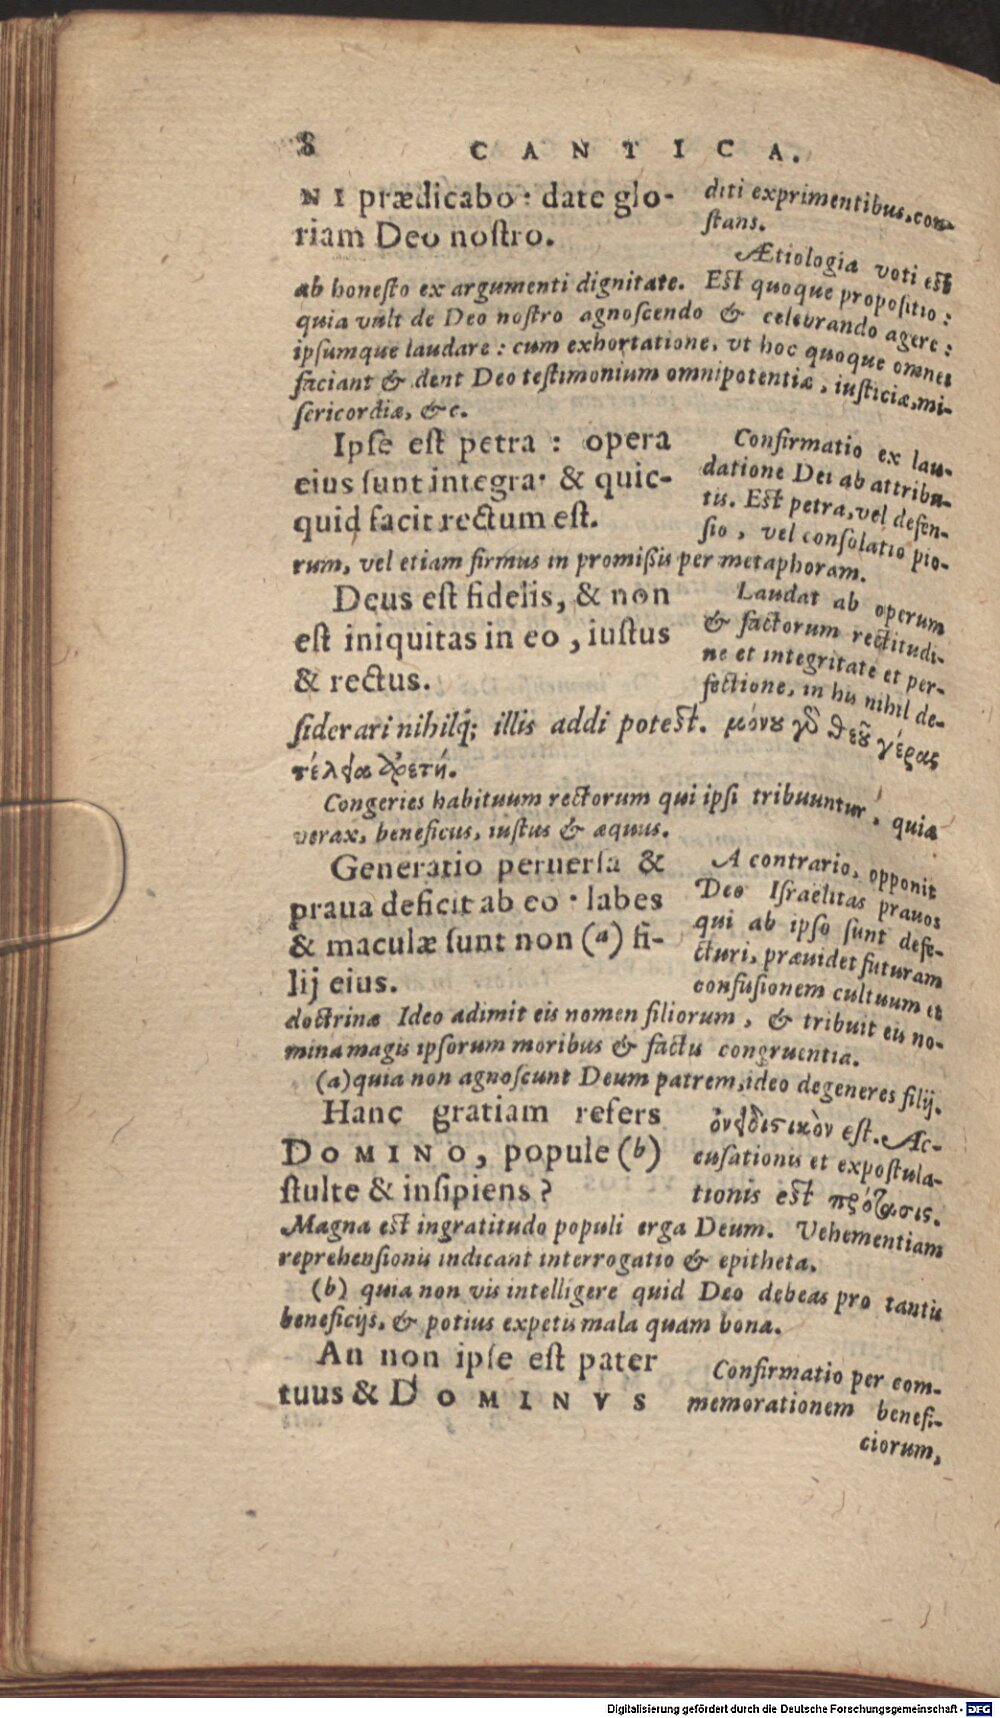 8 CANTICA.
NI prædicabo: date glo-
riam Deo nostro.
diti exprimentibus, con-
stans.
Ætiologia voti est
ab honesto ex argumenti dignitate. Est quoque propositio:
quia vult de Deo nostro agnoscendo & celebrando agere:
ipsumque laudare: cum exhortatione, vt hoc quoque omnes
faciant & dent Deo testimonium omnipotentiæ, iusticiæ, mi-
sericordiæ, &c.
Ipse est petra: opera
eius sunt integra· & quic-
quid facit rectum est.
Confirmatio ex lau-
datione Dei ab attribu-
tis. Est petra, vel defen-
sio, vel consolatio pio-
rum, vel etiam firmus in promißis per metaphoram.
Deus est fidelis, & non
est iniquitas in eo, iustus
& rectus.
Laudat ab operum
& factorum rectitudi-
ne et integritate et per-
fectione, in his nihil de-
siderari nihilq́; illis addi potest. μόνου γὸ θεοῦ γέρας
τέλεια ἀρετή.
Congeries habituum rectorum qui ipsi tribuuntur, quia
verax, beneficus, iustus & æquus.
Generatio peruersa &
praua deficit ab eo· labes
& maculæ sunt non (a) fi-
lij eius.
A contrario, opponit
Deo Israelitas prauos
qui ab ipso sunt defe-
cturi, præuidet futuram
confusionem cultuum et
doctrinæ Ideo adimit eis nomen filiorum, & tribuit eis no-
mina magis ipsorum moribus & factis congruentia.
(a) quia non agnoscunt Deum patrem, ideo degeneres filij.
Hanc gratiam refers
DOMINO, popule (b)
stulte & insipiens?
ὀνειδιστικὸν est. Ac-
cusationis et expostula-
tionis est πρότασις.
Magna est ingratitudo populi erga Deum. Vehementiam
reprehensionis indicant interrogatio & epitheta.
(b) quia non vis intelligere quid Deo debeas pro tantis
beneficijs, & potius expetis mala quam bona.
An non ipse est pater
tuus & DOMINVS
Confirmatio per com-
memorationem benefi-
ciorum,
Digitalisierung gefördert durch die Deutsche Forschungsgemeinschaft - DFG